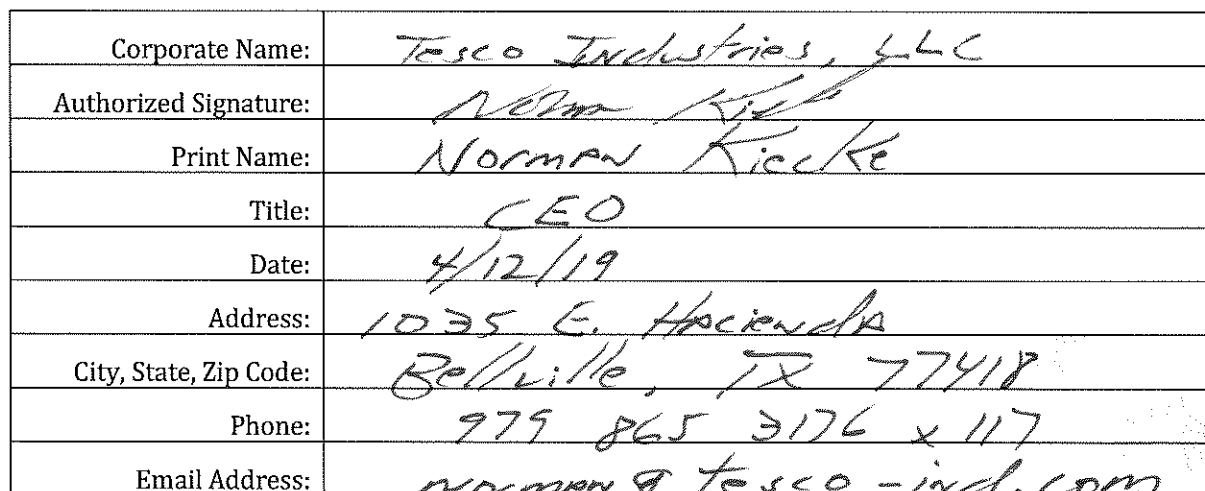 Corporate Name: Tesco Industries, LLC
Authorized Signature: Norman Kieck
Print Name: Norman Kiecke
Title: CEO
Date: 4/12/19
Address: 1035 E. Hacienda
City, State, Zip Code: Bellville, TX 77418
Phone: 979 865 3176 x 117
Email Address: norman@tesco-ind.com